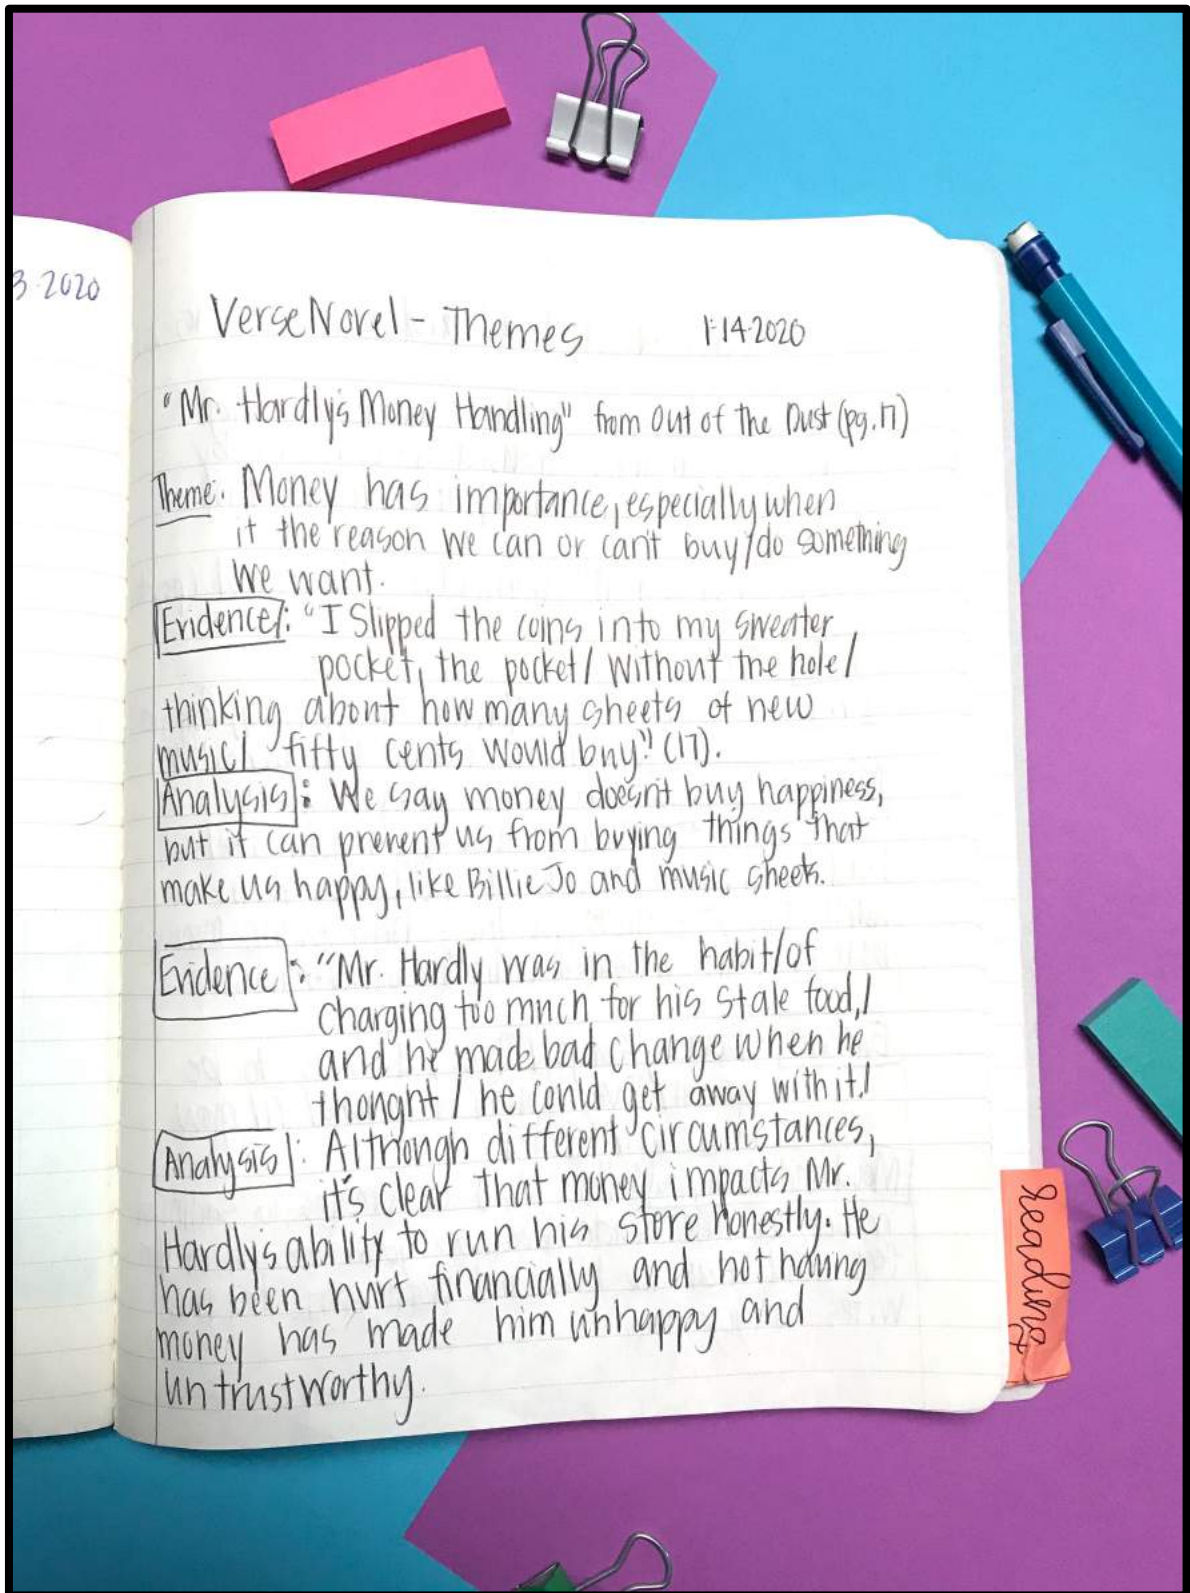 3·2020
Verse Novel - Themes 1·14·2020
"Mr. Hardly's Money Handling" from Out of the Dust (pg. 17)
Theme: Money has importance, especially when
it the reason we can or can't buy/do something
we want.
Evidence: "I Slipped the coins into my sweater
pocket, the pocket / without the hole /
thinking about how many sheets of new
music / fifty cents would buy." (17).
Analysis: We say money doesn't buy happiness,
but it can prevent us from buying things that
make us happy, like Billie Jo and music sheets.
Evidence: "Mr. Hardly was in the habit/of
charging too much for his stale food, /
and he made bad change when he
thought / he could get away with it. /
Analysis: Although different circumstances,
it's clear that money impacts Mr.
Hardly's ability to run his store honestly. He
has been hurt financially and not having
money has made him unhappy and
untrustworthy.
reading